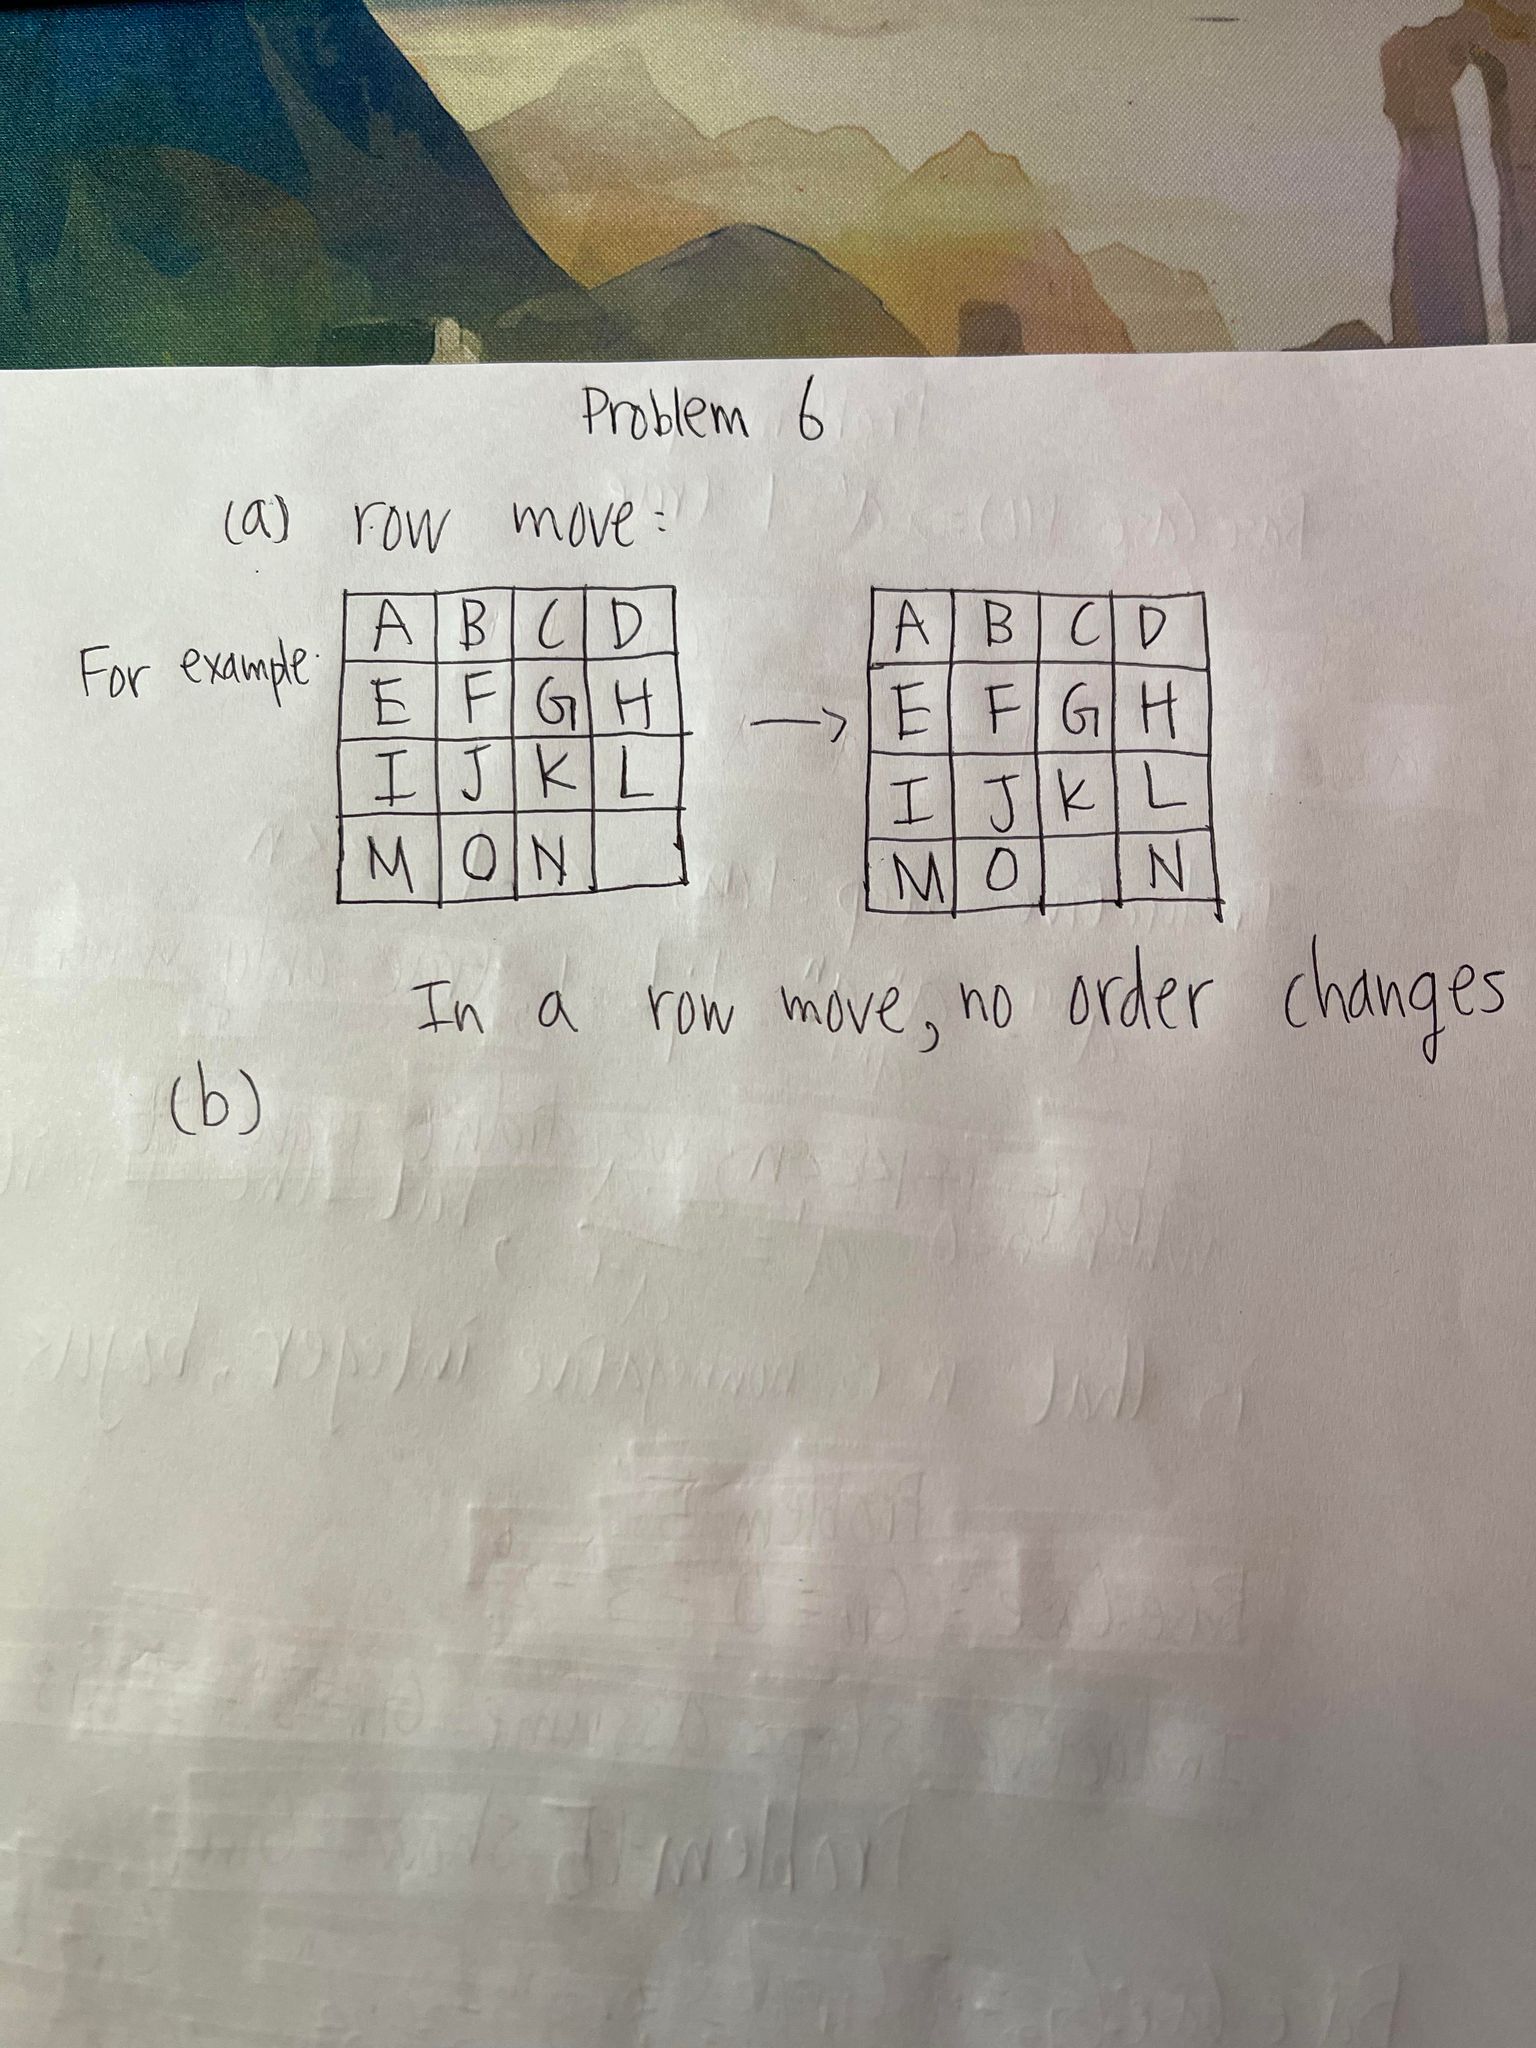 Problem 6
(a) row move:
For example.
A B C D
E F G H
I J K L
M O N
→
A B C D
E F G H
I J K L
M O N
In a row move, no order changes
(b)